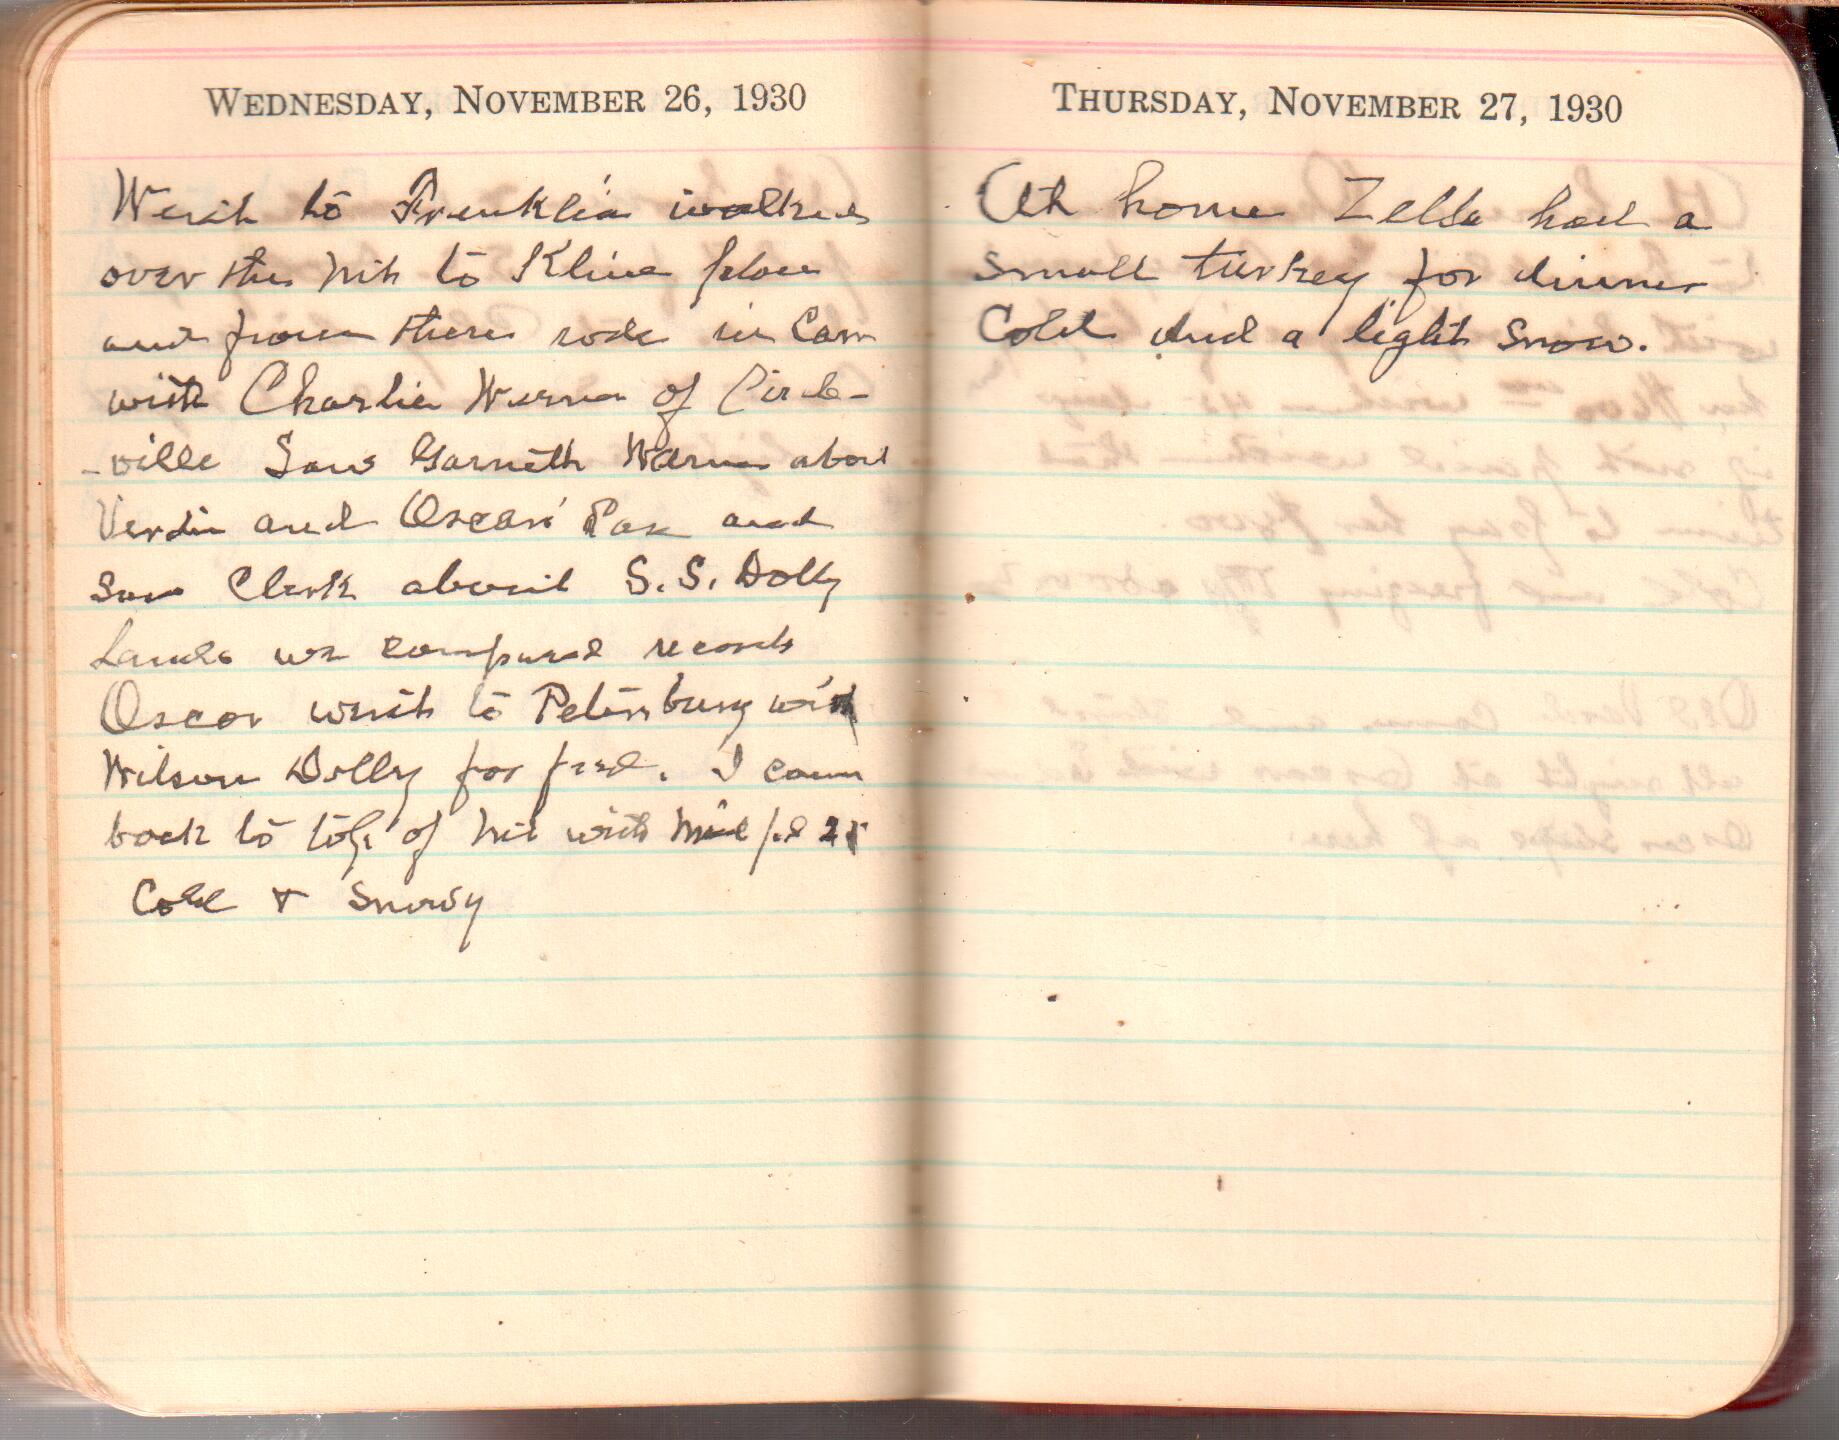 WEDNESDAY, NOVEMBER 26, 1930
Went to Franklin walked
over the hill to Kline place
and from there rode in Car
with Charlie Warner of Circle-
-ville Saw Garneth Warner about
Verdie and Oscar' Tax and
Saw Clerk about S.S. Dolly
Lands we compared records
Oscar went to Petersburg with
Wilson Dolly for feed. I came
back to top of hill with
Cold & Snowy
THURSDAY, NOVEMBER 27, 1930
At home Zella had a
small turkey for dinner
Cold and a light Snow.